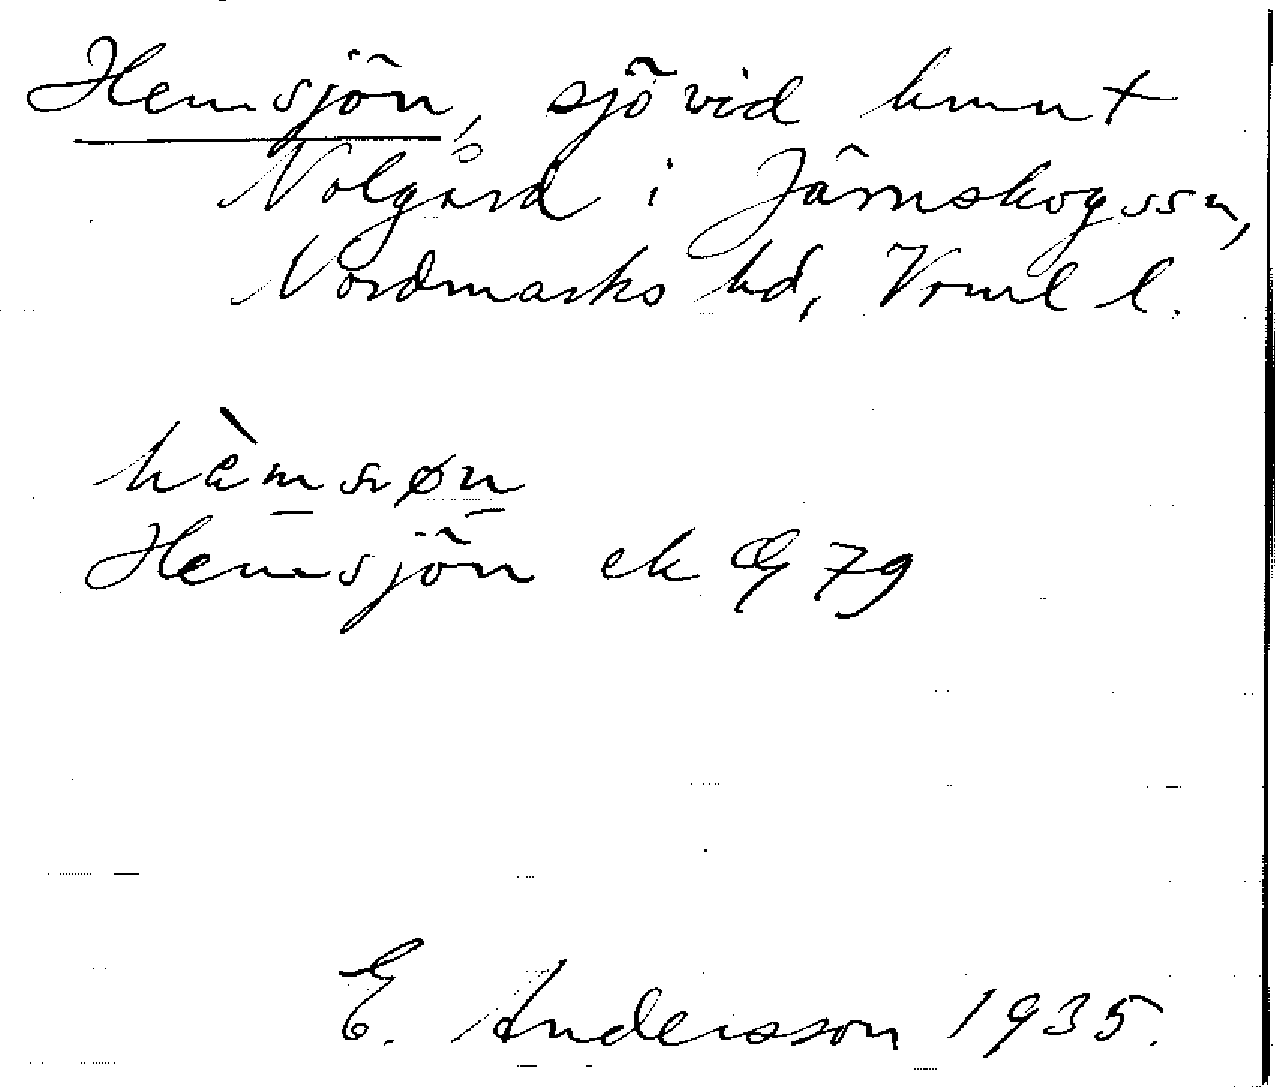 Hemsjön, sjö vid hmnt
Nolgård i Järnskogs sn,
Nordmarks hd, Vrml l.
hèmsøn
Hemsjön ek 79
E. Andersson 1935.